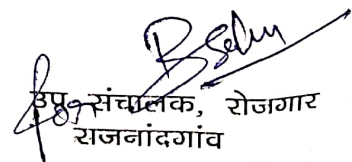 उप संचालक, रोजगार
राजनांदगांव